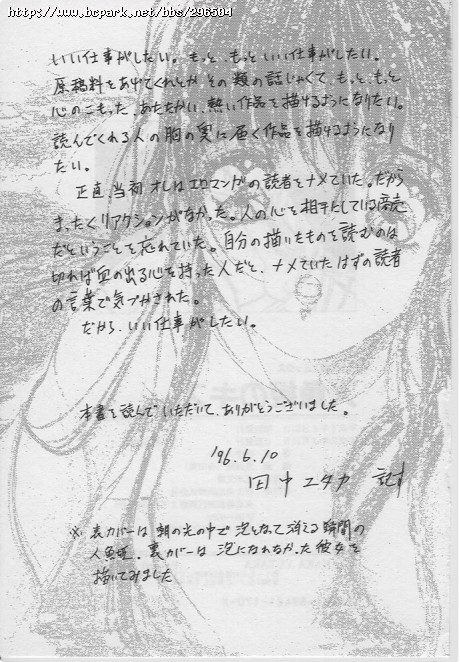 https://www.hcpark.net/bbs/296504
いい仕事がしたい。もっと、もっといい仕事がしたい。
原稿料をあげてくれとかその類の話じゃくて、もっと、もっと
心のこもった、あたたかい、熱い作品を描けるようになりたい。
読んでくれる人の胸の奥に届く作品を描けるようになり
たい。
正直、当初オレはエロマンガの読者をナメていた。だから
まったくリアクションがなかった。人の心を相手としている商売
だということを忘れていた。自分の描いたものを読むのは
切れば血の出る心を持った人だと、ナメていたはずの読者
の言葉で気づかされた。
だから、いい仕事がしたい。
本書を読んでいただいて、ありがとうございました。
'96.6.10
田中ユタカ 記す
※ 表カバーは 朝の光の中で泡となって消える瞬間の
人魚姫、裏カバーは 泡になれなかった彼女を
描いてみました